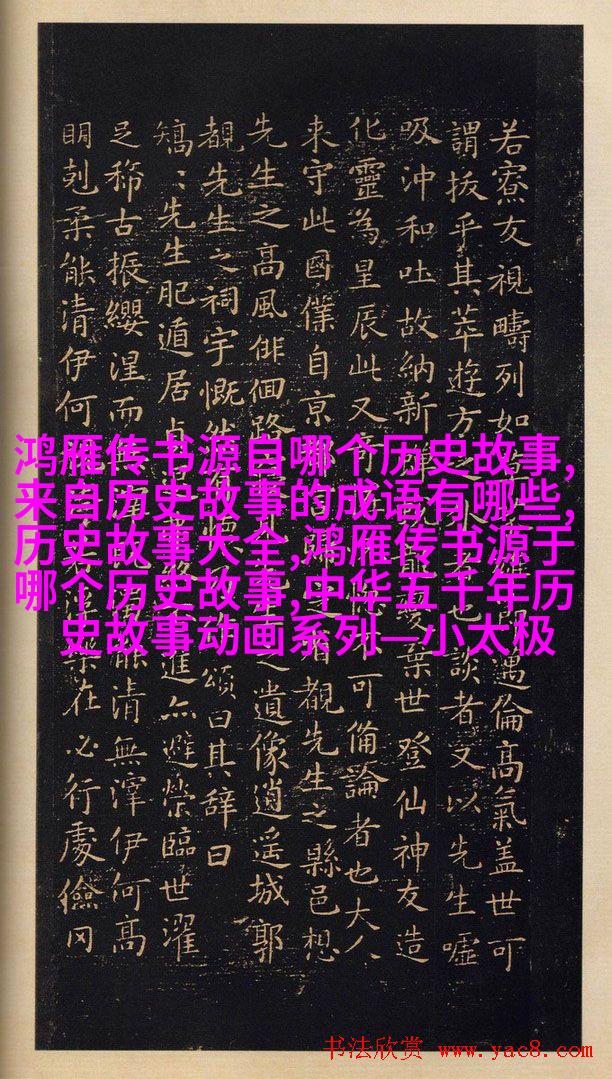 若寮友視疇列如邁倫高氣蓋世可
謂拔乎其萃遊方之外者也談者又以先生噓
吸沖和吐故納新龍變棄世登仙神友造
化靈為星辰此又奇不可備論者也大人
来守此國僕自京歸覩先生之縣邑想
先生之高風徘徊路之遺像逍遥城郭
覩先生之祠宇慨然頌曰其辞曰
矯〻先生肥遁居貞進亦避榮臨世濯
足稀古振纓涅而無能清無滓伊何高
明剋柔能清伊何在必行處儉罔
鸿雁传书源自哪个历史故事,
来自历史故事的成语有哪些,
历史故事大全,鸿雁传书源于
哪个历史故事,中华五千年历
史故事动画系列—小太极
书法欣赏 www.yac8.com